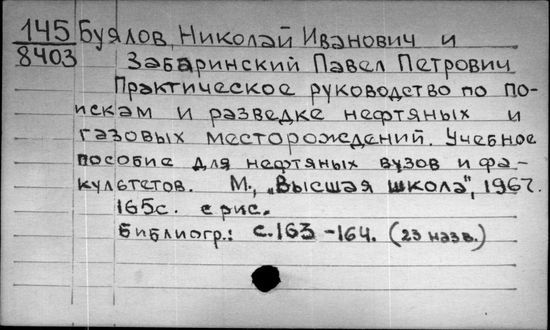 145 Буялов, Николай Иванович и
8403 Забаринский Павел Петрович
Практическое руководство по по-
искам и разведке нефтяных и
газовых месторождений. Учебное
пособие для нефтяных вузов и фа-
культетов. М., „Высшая школа", 1967.
165с. с рис.
Библиогр.: с.163-164. (23 назв.)